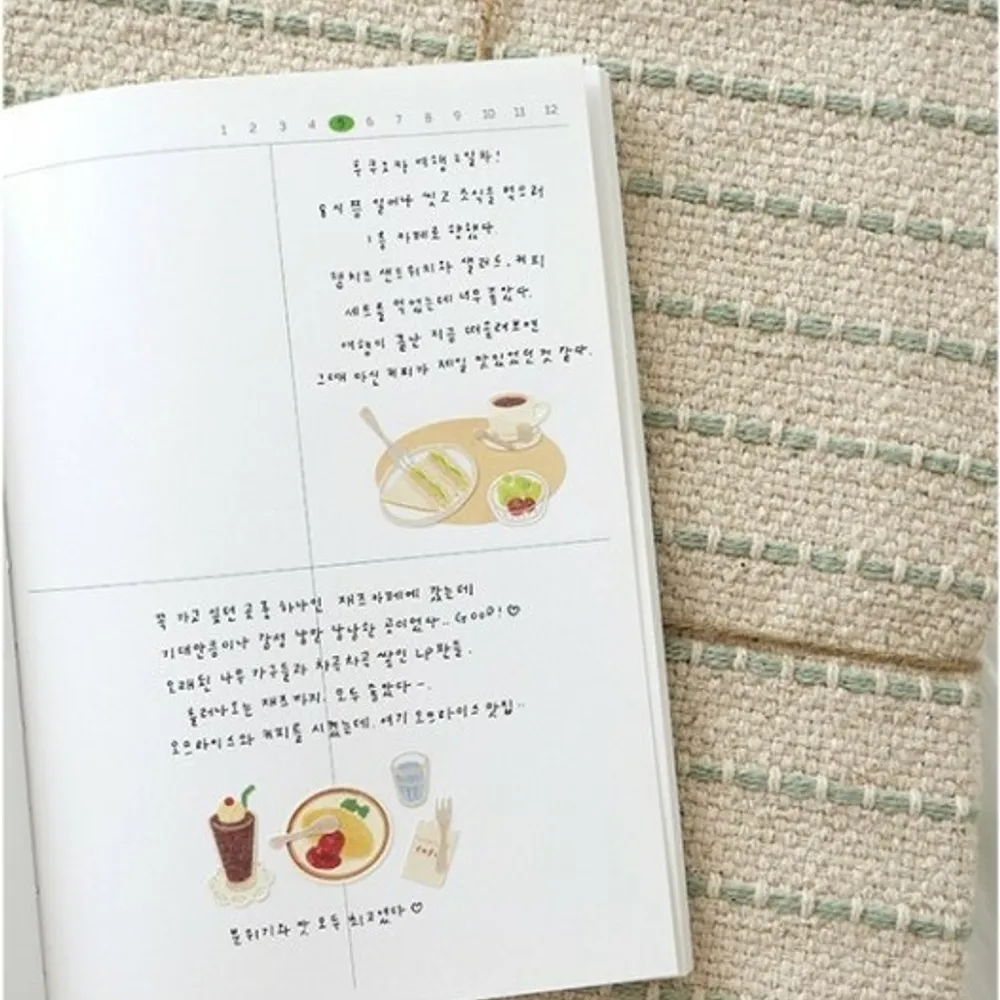 1 2 3 4 5 6 7 8 9 10 11 12
후쿠오카 여행 2일차!
8시쯤 일어나 씻고 조식을 먹으러
1층 카페로 향했다.
햄치즈 샌드위치와 샐러드, 커피
세트를 먹었는데 너무 좋았다.
여행이 끝난 지금 떠올려보면
그때 마신 커피가 제일 맛있었던 것 같다.
꼭 가고 싶던 곳 중 하나인 재즈카페에 갔는데
기대만큼이나 감성 낭만 낭낭한 곳이었다.. GOOD! ♡
오래된 나무 가구들과 차곡차곡 쌓인 LP판들,
흘러나오는 재즈까지. 모두 좋았다~.
오므라이스와 커피를 시켰는데, 여기 오므라이스 맛집..
분위기와 맛 모두 최고였다 ♡